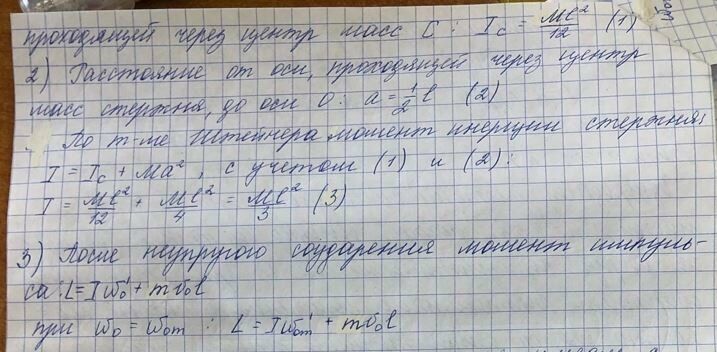 проходящей через центр масс C: I_c = Ml²/12 (1)
2) Расстояние от оси, проходящей через центр
масс стержня, до оси O: a = 1/2 l (2)
По т-ме Штейнера момент инерции стержня:
I = I_c + Ma², с учетом (1) и (2):
I = Ml²/12 + Ml²/4 = Ml²/3 (3)
3) После неупругого соударения момент импуль-
са: L = Iω₀' + mv₀l
при ω₀ = ω₀m : L = Iω₀m' + mv₀l